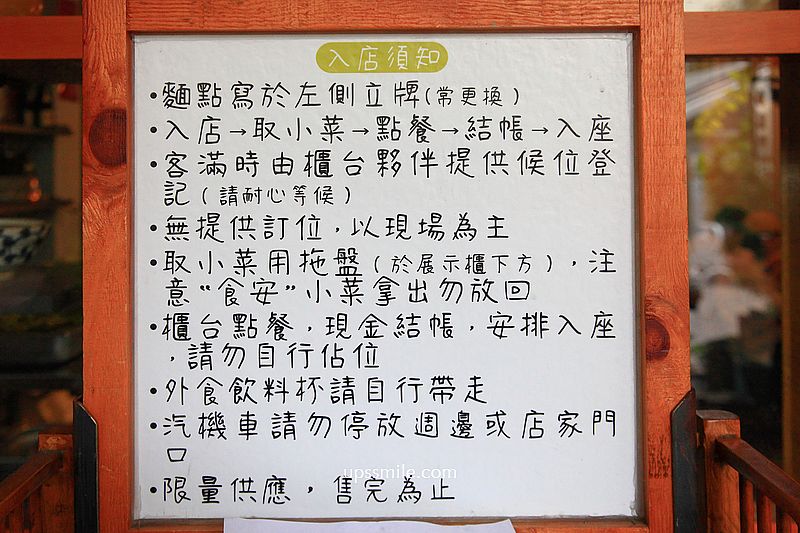 入店須知
•麵點寫於左側立牌(常更換)
•入店→取小菜→點餐→結帳→入座
•客滿時由櫃台夥伴提供候位登
記(請耐心等候)
•無提供訂位,以現場為主
•取小菜用拖盤(於展示櫃下方),注
意"食安"小菜拿出勿放回
•櫃台點餐,現金結帳,安排入座
,請勿自行佔位
•外食飲料杯請自行帶走
•汽機車請勿停放週邊或店家門
口
upssmile.com
•限量供應,售完為止